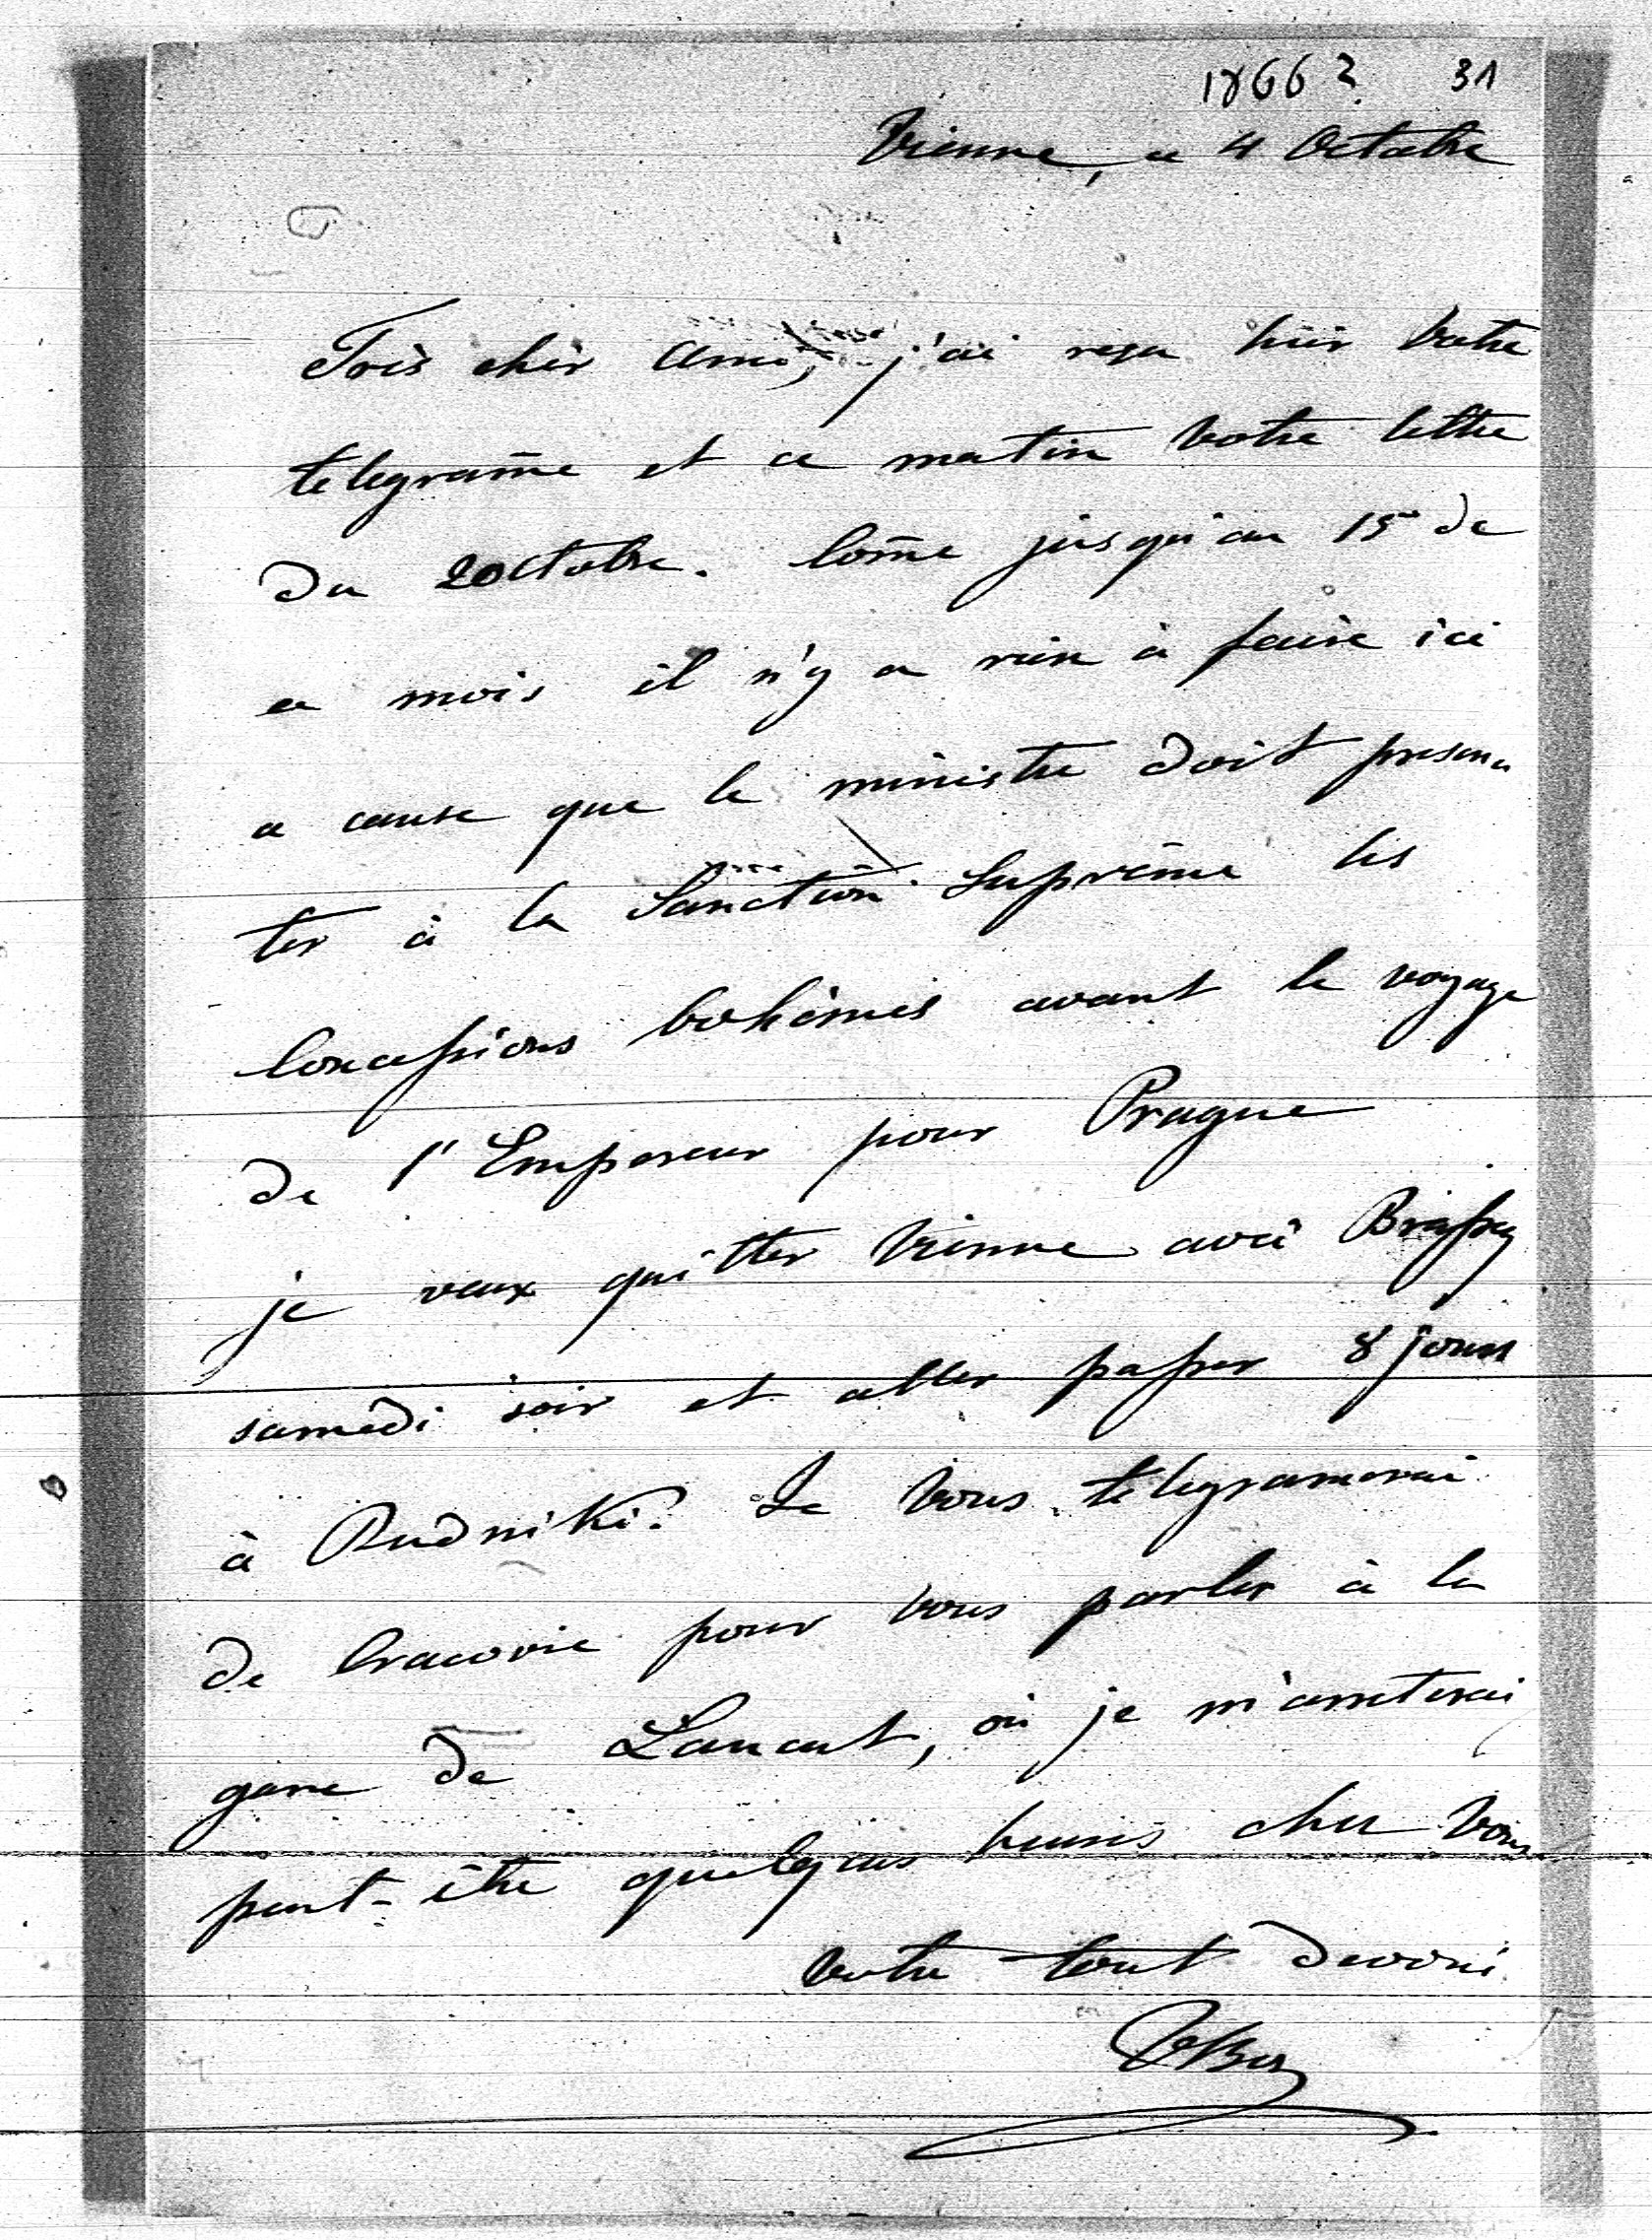 1866? 31
Vienne, ce 4 Octobre
Très cher Ami, j'ai reçu hier Votre
telegram̄e et ce matin Votre lettre
du 2 octobre. Com̄e jusqu'au 15 de
ce mois il n'y a rien à faire ici
a cause que le ministre doit presen
ter à la Sanction Suprême les
Concessions bohèmes avant le voyage
de l'Empereur pour Prague
je veux quitter Vienne avec Brassey
samedi soir et aller passer 8 jours
à Rudniki. Je Vous telegramerai
de Cracovie pour vous parler à la
gare de Lancut, où je m'arreterai
peut-être quelques heures chez Vous
Votre tout devoué